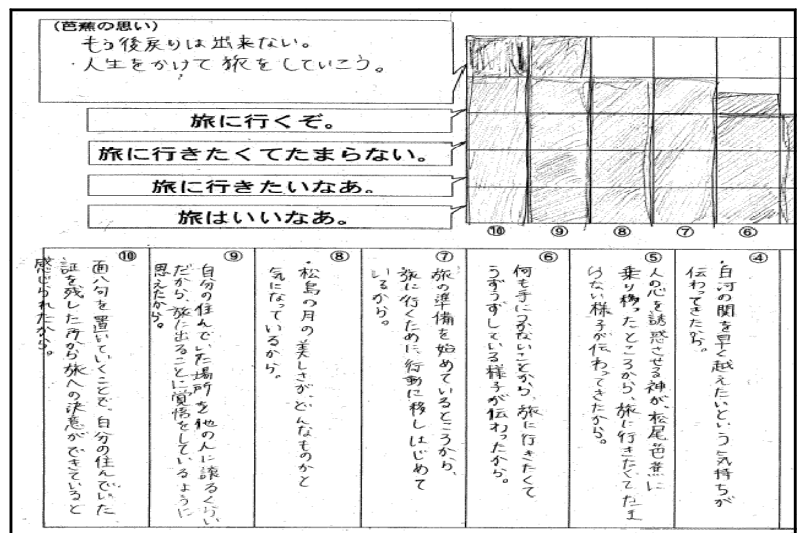 (芭蕉の思い)
もう後戻りは出来ない。
・人生をかけて旅をしていこう。
旅に行くぞ。
旅に行きたくてたまらない。
旅に行きたいなあ。
旅はいいなあ。
⑩ ⑨ ⑧ ⑦ ⑥
④
・白河の関を早く越えたいという気持ちが
伝わってきたから。
⑤
人の心を誘惑させる神が、松尾芭蕉に
乗り移ったところから、旅に行きたくてたま
らない様子が伝わってきたから。
⑥
何も手につかないことから、旅に行きたくて
うずうずしている様子が伝わったから。
⑦
旅の準備を始めているところから、
旅に行くために、行動に移しはじめて
いるから。
⑧
・松島の月の美しさが、どんなものかと
気になっているから。
⑨
自分の住んでいた場所を他の人に譲るくらい
だから、旅に出ることに覚悟をしているように
思えたから。
⑩
面八句を置いていくことで、自分の住んでいた
証を残した所から旅への決意ができていると
感じられたから。